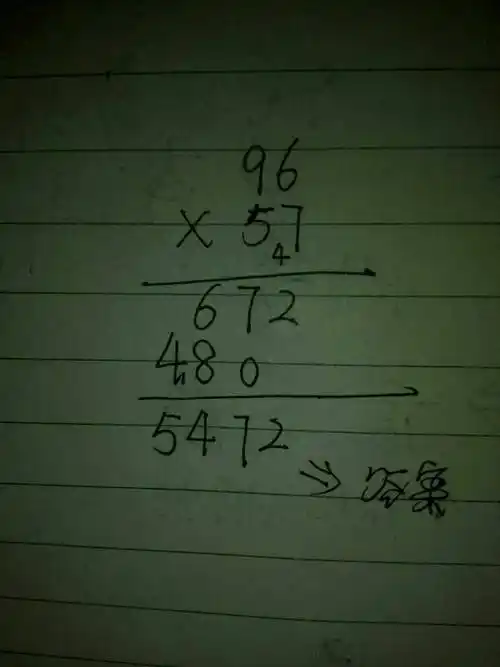 96
× 57
4
672
480
1
5472
⇒ 答案